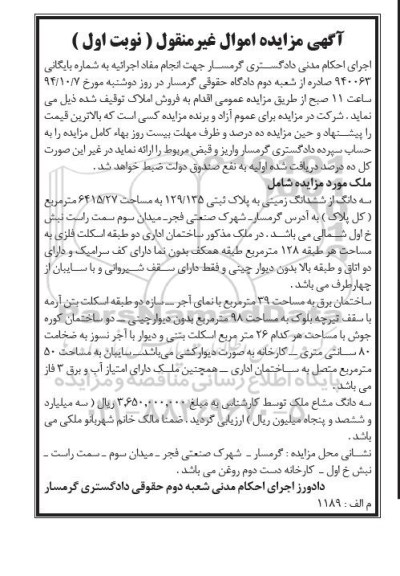 آگهی مزایده اموال غیرمنقول ( نوبت اول )
اجرای احکام مدنی دادگستری گرمسار جهت انجام مفاد اجرائیه به شماره بایگانی
۹۴۰۰۶۳ صادره از شعبه دوم دادگاه حقوقی گرمسار در روز دوشنبه مورخ ۹۴/۱۰/۷
ساعت ۱۱ صبح از طریق مزایده عمومی اقدام به فروش املاک توقیف شده ذیل می
نماید . شرکت در مزایده برای عموم آزاد و برنده مزایده کسی است که بالاترین قیمت
را پیشنهاد و حین مزایده ده درصد و ظرف مهلت بیست روز بهاء کامل مزایده را به
حساب سپرده دادگستری گرمسار واریز و قبض مربوط را ارائه نماید در غیر این صورت
کل ده درصد دریافت شده اولیه به نفع صندوق دولت ضبط خواهد شد .
ملک مورد مزایده شامل
سه دانگ از ششدانگ زمینی به پلاک ثبتی ۱۲۹/۱۳۵ به مساحت ۶۴۱۵/۲۷ مترمربع
( کل پلاک ) به آدرس گرمسار- شهرک صنعتی فجر- میدان سوم سمت راست نبش
خ اول شمالی می باشد . در ملک مذکور ساختمان اداری دو طبقه اسکلت فلزی به
مساحت هر طبقه ۱۲۸ مترمربع طبقه همکف بدون نما دارای کف سرامیک و دارای
دو اتاق و طبقه بالا بدون دیوار چینی و فقط دارای سقف شیروانی و با سایبان از
چهارطرف می باشد .
ساختمان برق به مساحت ۳۹ مترمربع با نمای آجر – سازه دو طبقه اسکلت بتن آرمه
با سقف تیرچه بلوک به مساحت ۹۸ مترمربع بدون دیوارچینی – دو ساختمان کوره
جوش با مساحت هر کدام ۲۶ متر مربع اسکلت بتنی و دیوار با آجر نسوز به ضخامت
۸۰ سانتی متری – کارخانه به صورت دیوارکشی می‌باشد- سایبان به مساحت ۵۰
مترمربع متصل به ساختمان اداری – همچنین ملک دارای امتیاز آب و برق ۳ فاز
می باشد.
سه دانگ مشاع ملک توسط کارشناس به مبلغ ۳,۶۵۰,۰۰۰,۰۰۰ ریال ( سه میلیارد
و ششصد و پنجاه میلیون ریال ) ارزیابی گردید . ضمنا مالک خانم شهربانو ملکی می
باشد .
نشانی محل مزایده : گرمسار – شهرک صنعتی فجر – میدان سوم – سمت راست –
نبش خ اول – کارخانه دست دوم روغن می باشد .
دادورز اجرای احکام مدنی شعبه دوم حقوقی دادگستری گرمسار
م الف : ۱۱۸۹